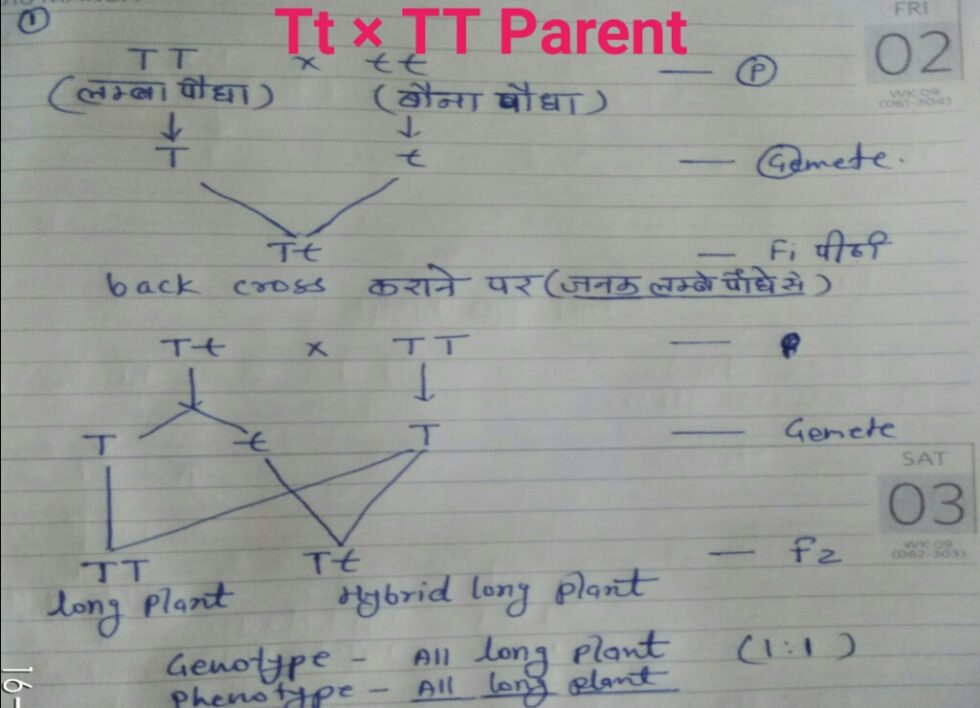 ①
Tt × TT Parent
FRI
02
WK 09
T T × t t — Ⓟ
(लम्बा पौधा) (बौना पौधा)
T t — Gemete.
Tt — F1 पीढी
back cross कराने पर (जनक लम्बे पौधे से)
Tt × TT — P
T t T — Gemete
SAT
03
WK 09
(062-303)
TT Tt — F2
long Plant Hybrid long plant
Genotype - All long plant (1:1)
Phenotype - All long plant
16-